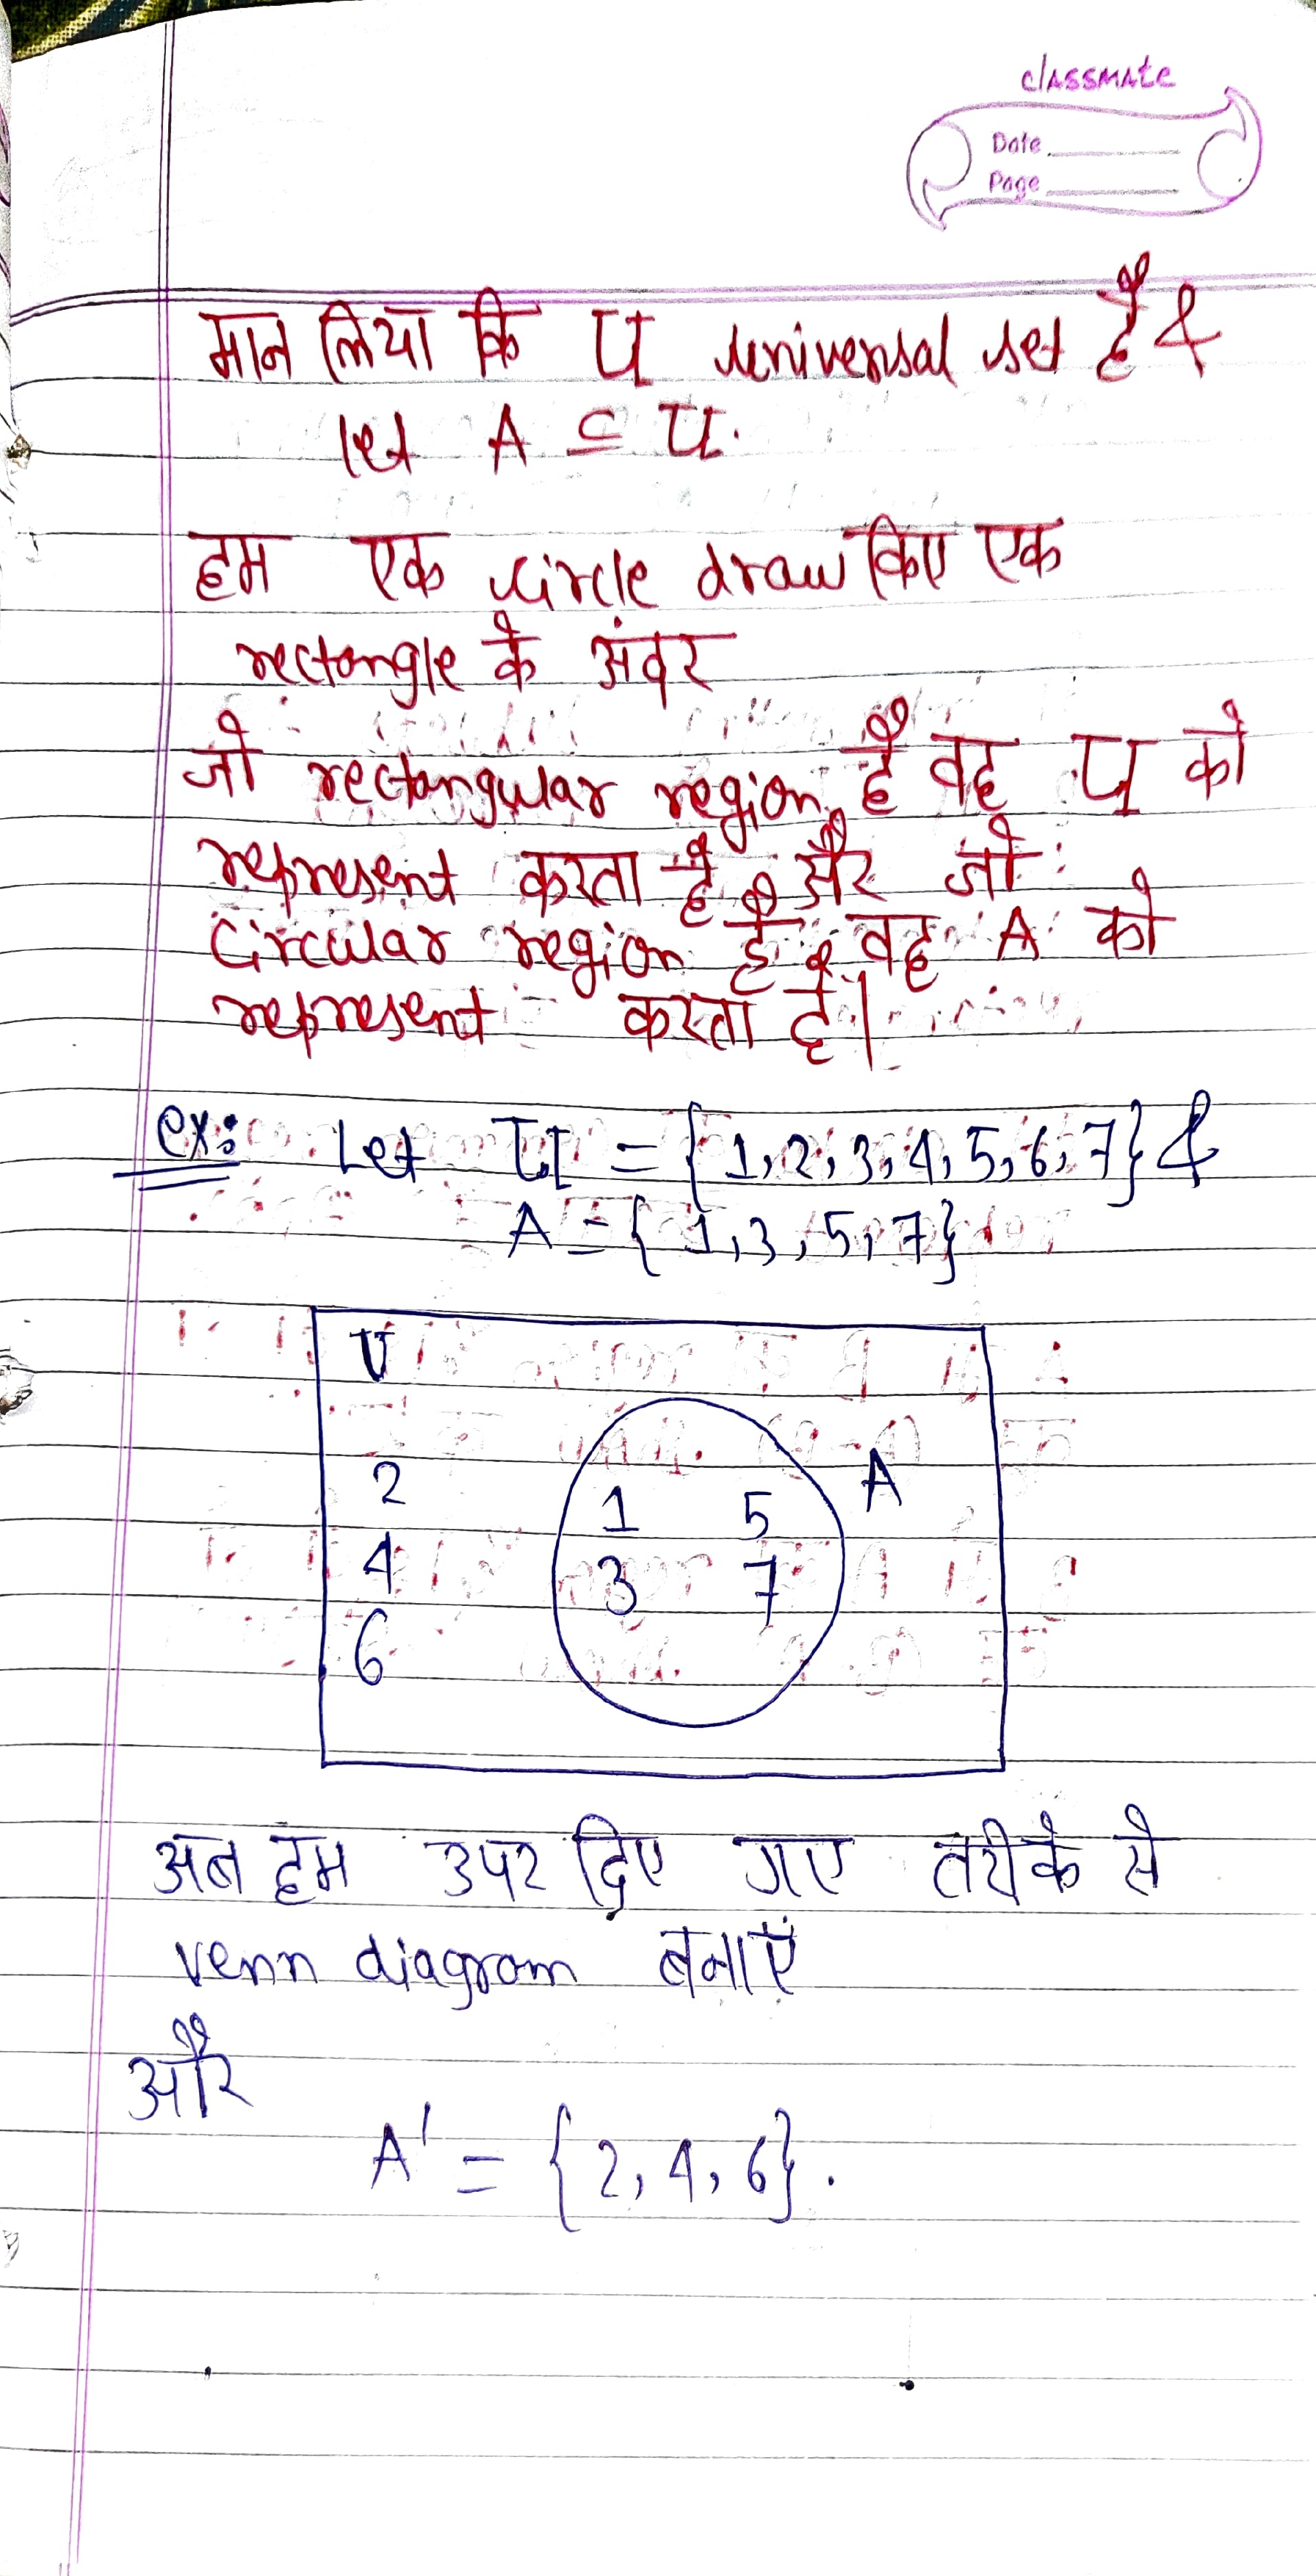 classmate
Date
Page
मान लिया कि U universal set है &
let A ⊆ U.
हम एक circle draw किए एक
rectangle के अंदर
जो rectangular region है वह U को
represent करता है और जो
Circular region है वह A को
represent करता है।
ex: Let U = {1, 2, 3, 4, 5, 6, 7} &
A = {1, 3, 5, 7}
U
2
1 5 A
4
3 7
6
अब हम उपर दिए गए तरीके से
venn diagram बनाएँ
और
A' = {2, 4, 6}.